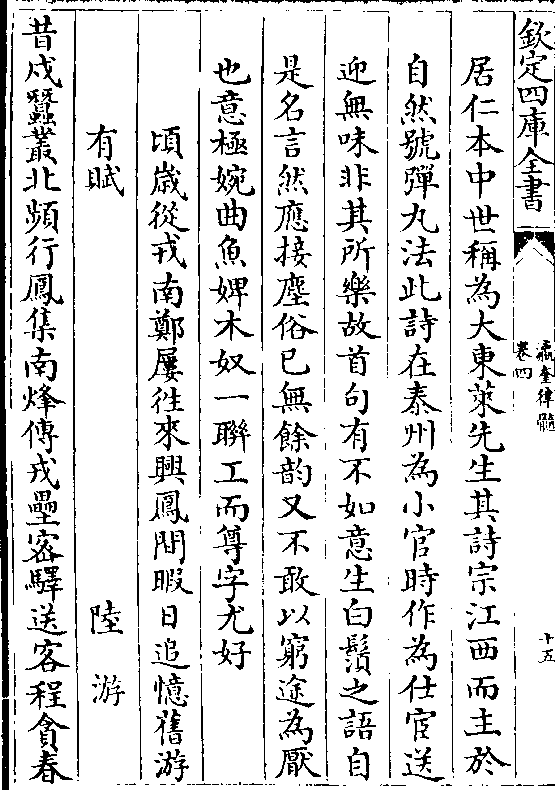 欽定四庫全書
瀛奎律髓
卷四
十五
居仁本中世稱為大東萊先生其詩宗江西而主於
自然號彈丸法此詩在泰州為小官時作為仕宦送
迎無味非其所樂故首句有不如意生白鬚之語自
是名言然應接塵俗已無餘韵又不敢以窮途為厭
也意極婉曲魚婢木奴一聯工而蓴字尤好
頃嵗從戎南鄭屢徃來興鳳間暇日追憶舊游
有賦
陸游
昔戍蠶叢北頻行鳳集南烽傳戎壘密驛送客程貪春